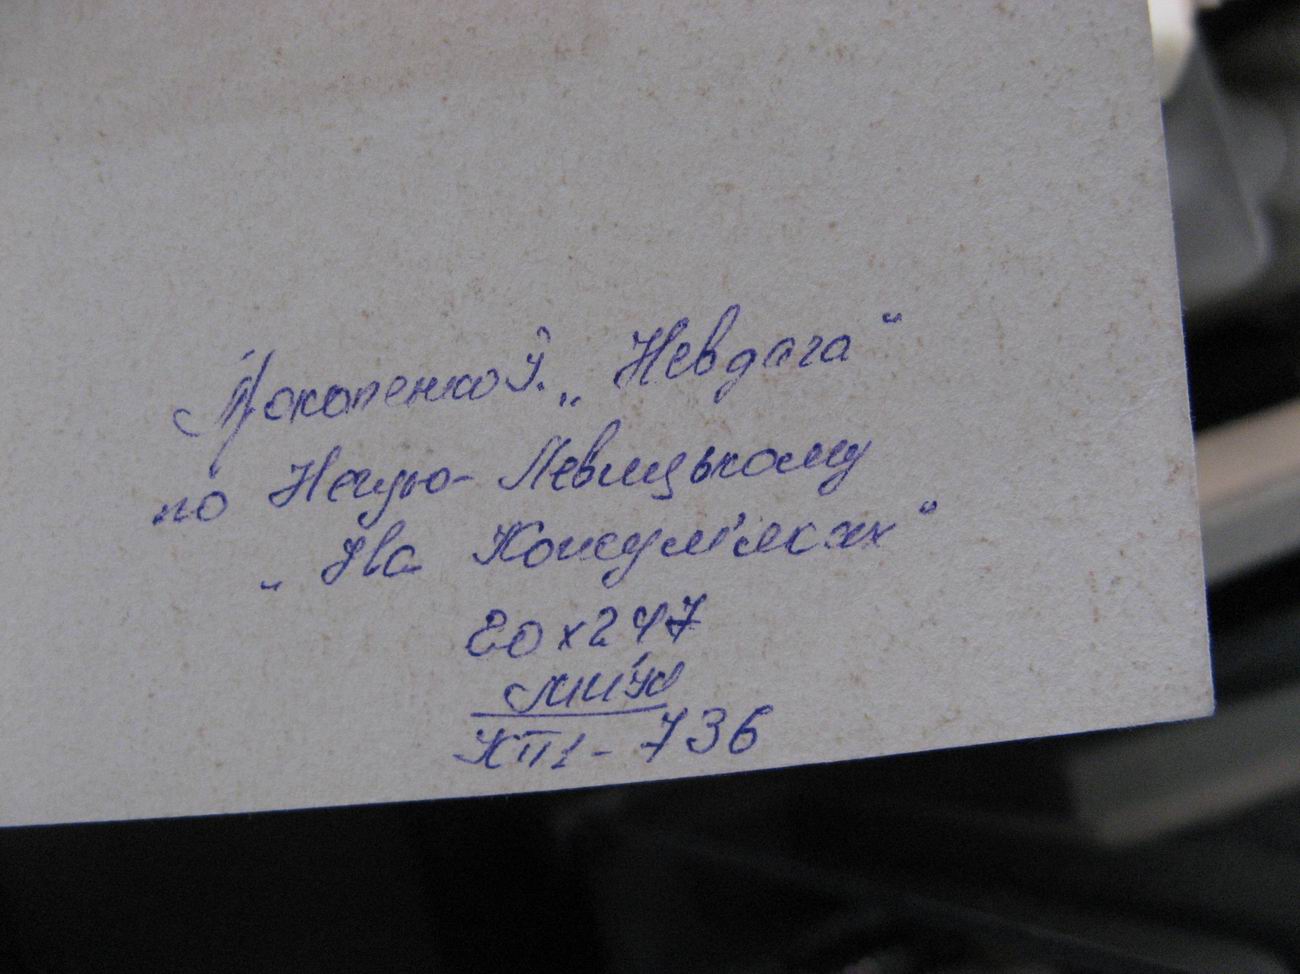 Прокопенко Й. „Невдага“
по Нечую-Левицькому
„На Кожум'яках“
20х247
МИУО
КП1-736